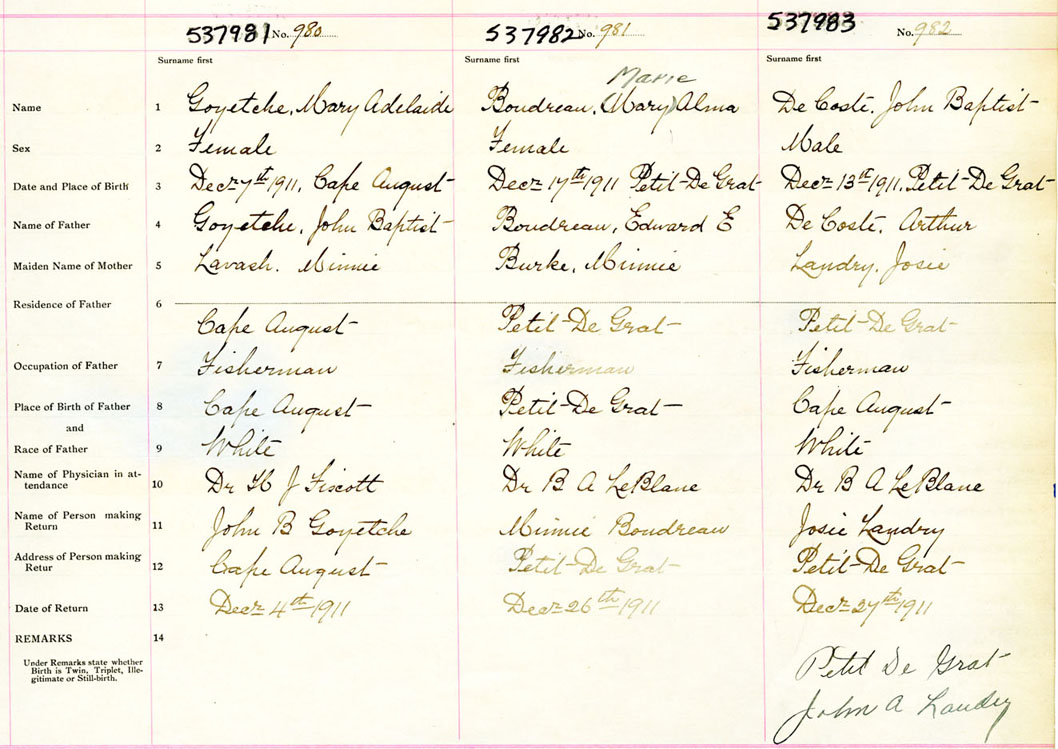 537981 No. 980 537982 No. 981 537983 No. 982
Surname first Surname first Surname first
Marie
Name 1 Goyetche, Mary Adelaide Boudreau, (Mary) Alma De Coste, John Baptist
Sex 2 Female Female Male
Date and Place of Birth 3 Decr 7th 1911, Cape August Decr 17th 1911 Petit-De Grat Decr 13th 1911, Petit-De Grat
Name of Father 4 Goyetche, John Baptist Boudreau, Edward E De Coste, Arthur
Maiden Name of Mother 5 Lavash, Minnie Burke, Minnie Landry, Josie
Residence of Father 6
Cape August Petit-De Grat Petit-De Grat
Occupation of Father 7 Fisherman Fisherman Fisherman
Place of Birth of Father 8 Cape August Petit-De Grat Cape August
and
Race of Father 9 White White White
Name of Physician in at-
tendance 10 Dr H J Fiscott Dr B A LeBlanc Dr B A LeBlanc
Name of Person making
Return 11 John B Goyetche Minnie Boudreau Josie Landry
Address of Person making
Retur 12 Cape August Petit-De Grat Petit-De Grat
Date of Return 13 Decr 4th 1911 Decr 26th 1911 Decr 27th 1911
REMARKS 14
Under Remarks state whether
Birth is Twin, Triplet, Ille-
gitimate or Still-birth.
Petit De Grat
John A Landry